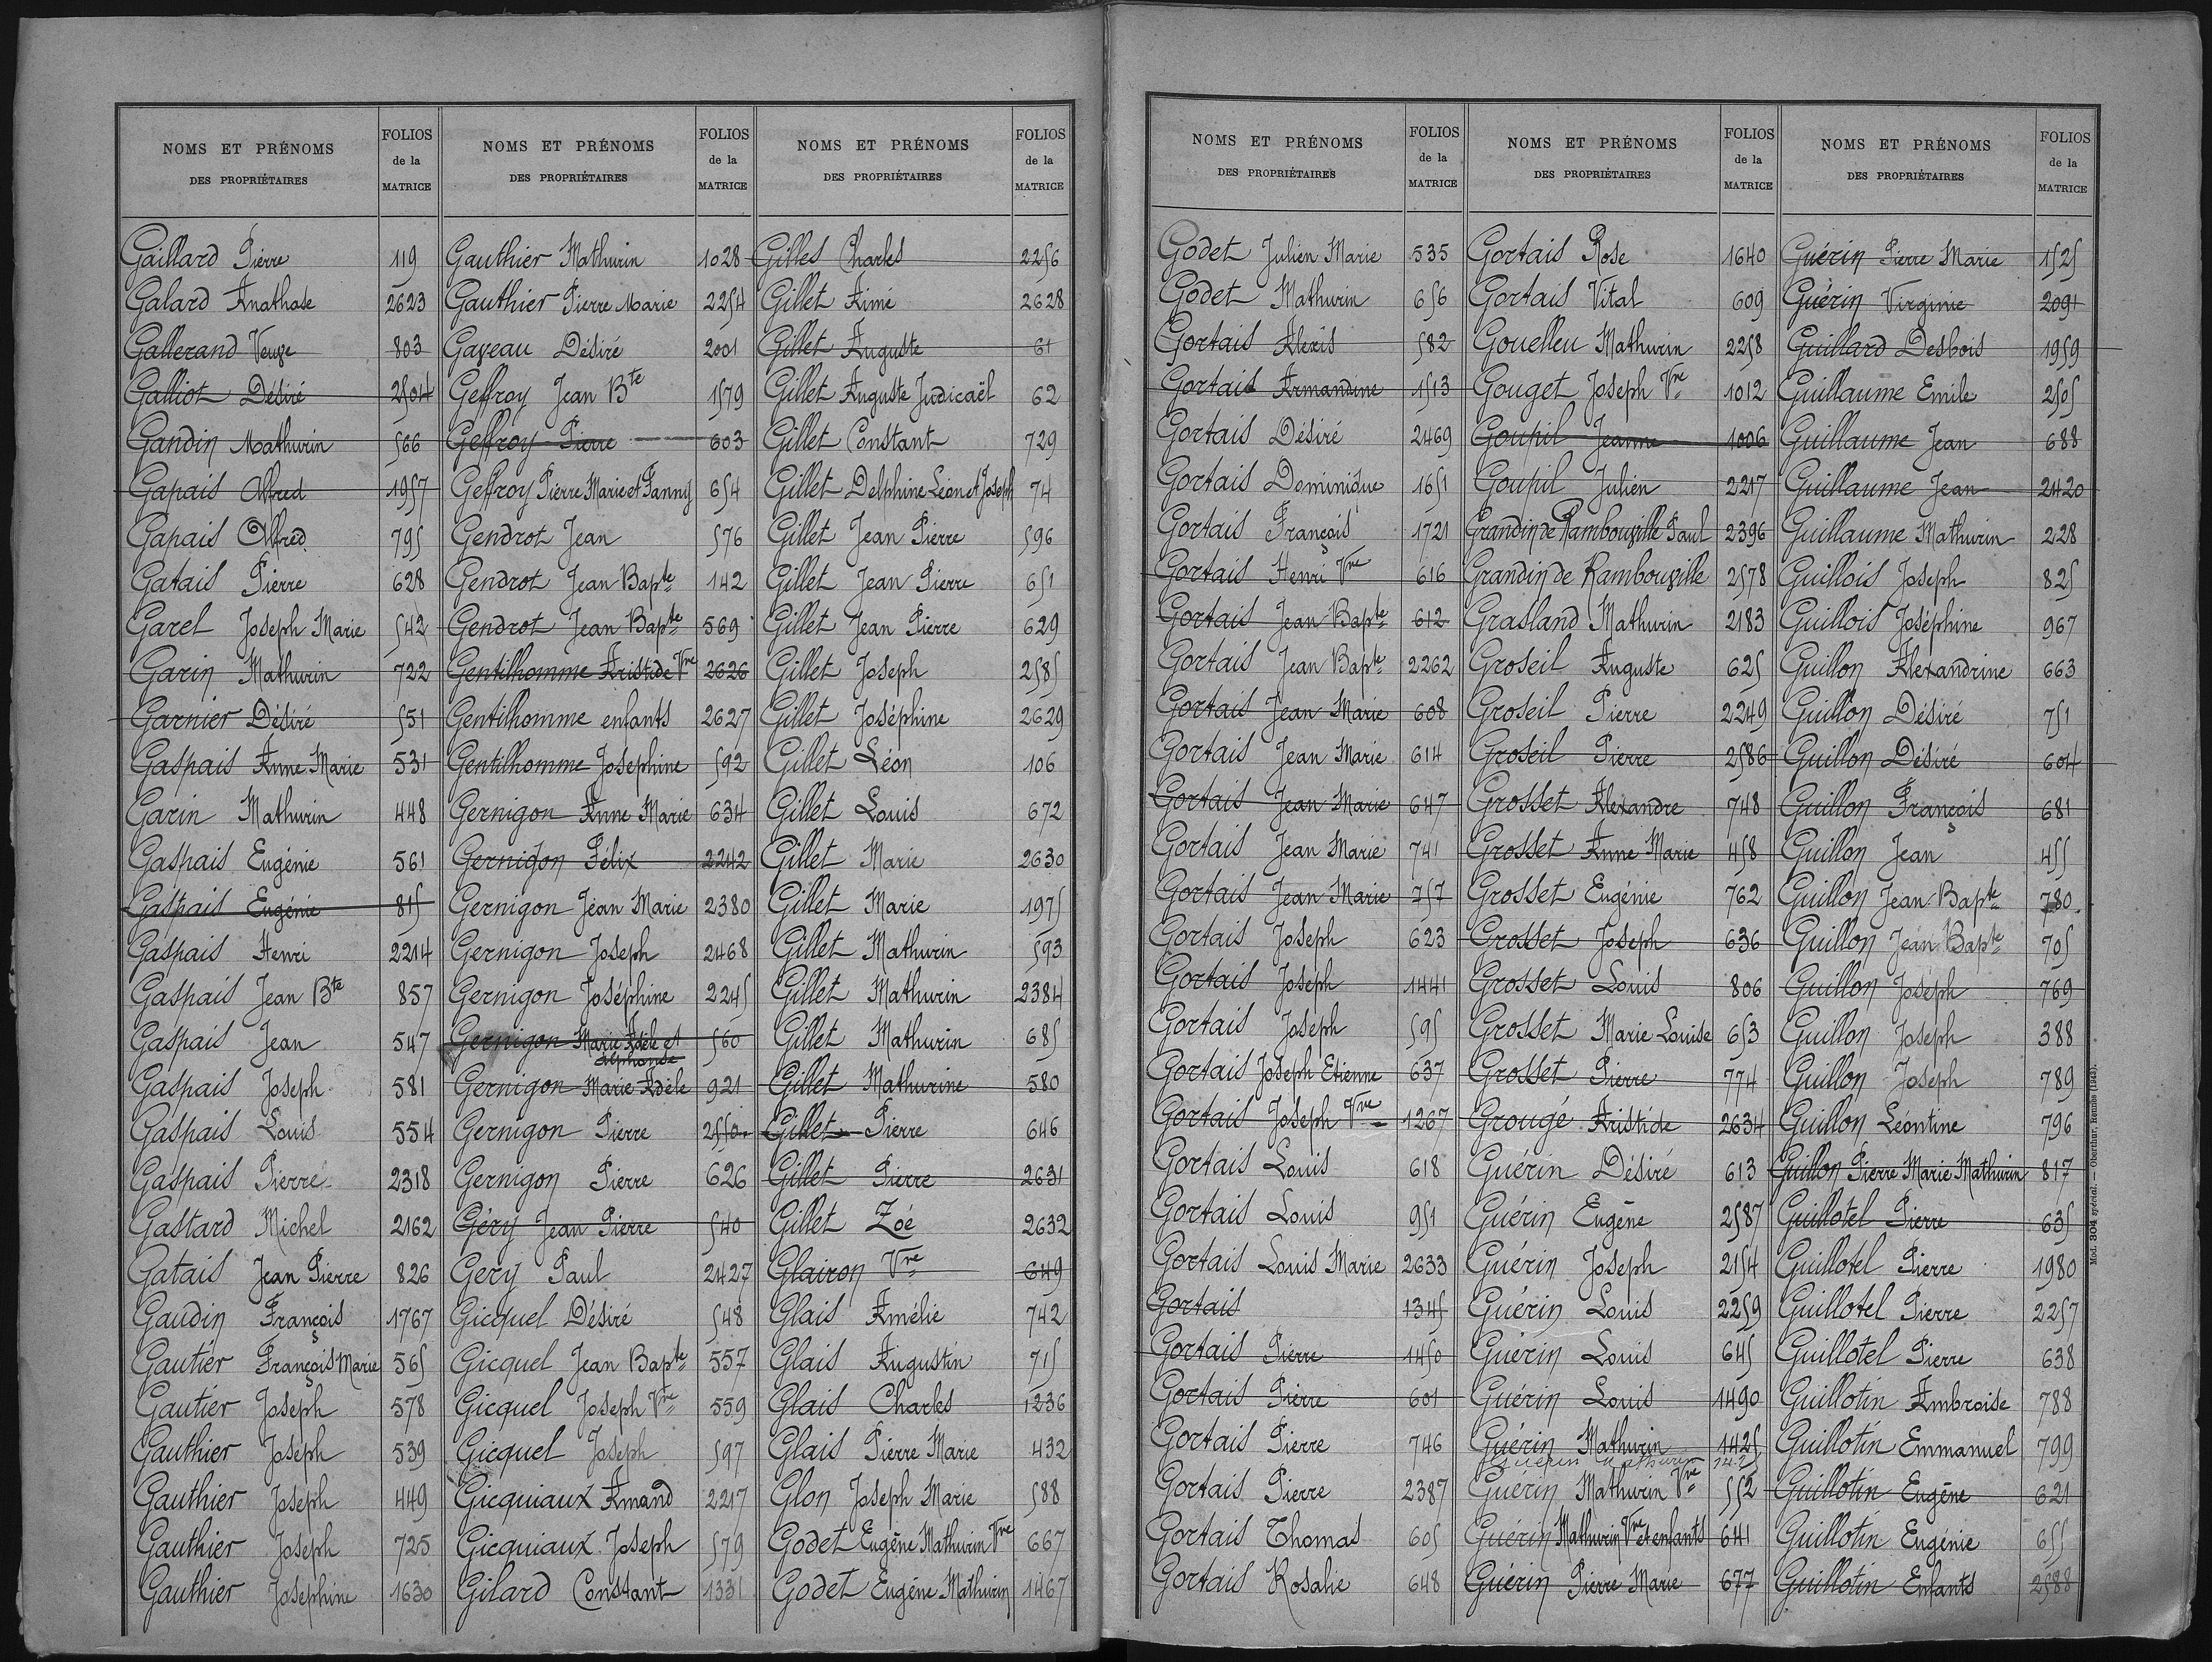 NOMS ET PRÉNOMS
DES PROPRIÉTAIRES
FOLIOS
de la
MATRICE
Gaillard Pierre 119
Galard Anathase 2623
Gallerand Veuve 803
Galliot Désiré 2504
Gandin Mathurin 566
Gapais Alfred 1957
Gapais Alfred 795
Gatais Pierre 628
Garel Joseph Marie 542
Garin Mathurin 722
Garnier Désiré 551
Gaspais Anne Marie 531
Garin Mathurin 448
Gaspais Eugénie 561
Gaspais Eugénie 815
Gaspais Henri 2214
Gaspais Jean Bte 857
Gaspais Jean 547
Gaspais Joseph 581
Gaspais Louis 554
Gaspais Pierre 2318
Gastard Michel 2162
Gatais Jean Pierre 826
Gaudin François 1767
Gautier François Marie 565
Gautier Joseph 578
Gauthier Joseph 539
Gauthier Joseph 449
Gauthier Joseph 725
Gauthier Josephine 1630
NOMS ET PRÉNOMS
DES PROPRIÉTAIRES
FOLIOS
de la
MATRICE
Gauthier Mathurin 1028
Gauthier Pierre Marie 2254
Gaveau Désiré 2001
Geffroy Jean Bte 1579
Geffroy Pierre 603
Geffroy Pierre Marie et Fanny 654
Gendrot Jean 576
Gendrot Jean Bapte 142
Gendrot Jean Bapte 569
Gentilhomme Aristide Vve 2626
Gentilhomme enfants 2627
Gentilhomme Josephine 592
Gernigon Anne Marie 634
Gernigon Félix 2242
Gernigon Jean Marie 2380
Gernigon Joseph 2468
Gernigon Joséphine 2245
Gernigon Marie Adèle et 560
Alphonse
Gernigon Marie Adèle 921
Gernigon Pierre 2550
Gernigon Pierre 626
Géry Jean Pierre 540
Gery Paul 2427
Gicquel Désiré 548
Gicquel Jean Bapte 557
Gicquel Joseph Vve 559
Gicquel Joseph 597
Gicquiaux Amand 2217
Gicquiaux Joseph 579
Gilard Constant 1331
NOMS ET PRÉNOMS
DES PROPRIÉTAIRES
FOLIOS
de la
MATRICE
Gilles Charles 2256
Gillet Aimé 2628
Gillet Auguste 61
Gillet Auguste Judicaël 62
Gillet Constant 729
Gillet Delphine Léon et Joseph 74
Gillet Jean Pierre 596
Gillet Jean Pierre 651
Gillet Jean Pierre 629
Gillet Joseph 2585
Gillet Joséphine 2629
Gillet Léon 106
Gillet Louis 672
Gillet Marie 2630
Gillet Marie 1975
Gillet Mathurin 593
Gillet Mathurin 2384
Gillet Mathurin 685
Gillet Mathurine 580
Gillet Pierre 646
Gillet Pierre 2631
Gillet Zoé 2632
Glairon Vve 649
Glais Amélie 742
Glais Augustin 715
Glais Charles 1236
Glais Pierre Marie 432
Glon Joseph Marie 588
Godet Eugène Mathurin Vve 667
Godet Eugène Mathurin 1467
NOMS ET PRÉNOMS
DES PROPRIÉTAIRES
FOLIOS
de la
MATRICE
Godet Julien Marie 535
Godet Mathurin 656
Gortais Alexis 582
Gortais Armandine 1513
Gortais Désiré 2469
Gortais Dominique 1651
Gortais François 1721
Gortais Henri Vve 616
Gortais Jean Bapte 612
Gortais Jean Bapte 2262
Gortais Jean Marie 608
Gortais Jean Marie 614
Gortais Jean Marie 647
Gortais Jean Marie 741
Gortais Jean Marie 757
Gortais Joseph 623
Gortais Joseph 1441
Gortais Joseph 595
Gortais Joseph Etienne 637
Gortais Joseph Vve 1267
Gortais Louis 618
Gortais Louis 951
Gortais Louis Marie 2633
Gortais 1345
Gortais Pierre 1450
Gortais Pierre 601
Gortais Pierre 746
Gortais Pierre 2387
Gortais Thomas 605
Gortais Rosalie 648
NOMS ET PRÉNOMS
DES PROPRIÉTAIRES
FOLIOS
de la
MATRICE
Gortais Rose 1640
Gortais Vital 609
Gouelleu Mathurin 2258
Gouget Joseph Vve 1012
Goupil Jeanne 1006
Goupil Julien 2217
Grandin de Rambouville Paul 2396
Grandin de Rambouville 2578
Grasland Mathurin 2183
Groseil Auguste 625
Groseil Pierre 2249
Groseil Pierre 2586
Grosset Alexandre 748
Grosset Anne Marie 458
Grosset Eugénie 762
Grosset Joseph 636
Grosset Louis 806
Grosset Marie Louise 653
Grosset Pierre 774
Grougé Aristide 2634
Guérin Désiré 613
Guérin Eugène 2587
Guérin Joseph 2154
Guérin Louis 2259
Guérin Louis 645
Guérin Louis 1490
Guérin Mathurin 1425
Guérin Mathurin 1425
Guérin Mathurin Vve 552
Guérin Mathurin Vve et enfants 641
Guérin Pierre Marie 677
NOMS ET PRÉNOMS
DES PROPRIÉTAIRES
FOLIOS
de la
MATRICE
Guérin Pierre Marie 1525
Guérin Virginie 2091
Guillard Desbois 1959
Guillaume Emile 2505
Guillaume Jean 688
Guillaume Jean 2420
Guillaume Mathurin 228
Guillois Joseph 825
Guillois Joséphine 967
Guillon Alexandrine 663
Guillon Désiré 751
Guillon Désiré 604
Guillon François 681
Guillon Jean 455
Guillon Jean Bapte 780
Guillon Jean Bapte 705
Guillon Joseph 769
Guillon Joseph 388
Guillon Joseph 789
Guillon Léontine 796
Guillon Pierre Marie Mathurin 817
Guillotel Pierre 635
Guillotel Pierre 1980
Guillotel Pierre 2257
Guillotel Pierre 638
Guillotin Ambroise 788
Guillotin Emmanuel 799
Guillotin Eugène 621
Guillotin Eugénie 655
Guillotin Enfants 2588
Mod. 304 spécial. — Oberthur, Rennes (1943).